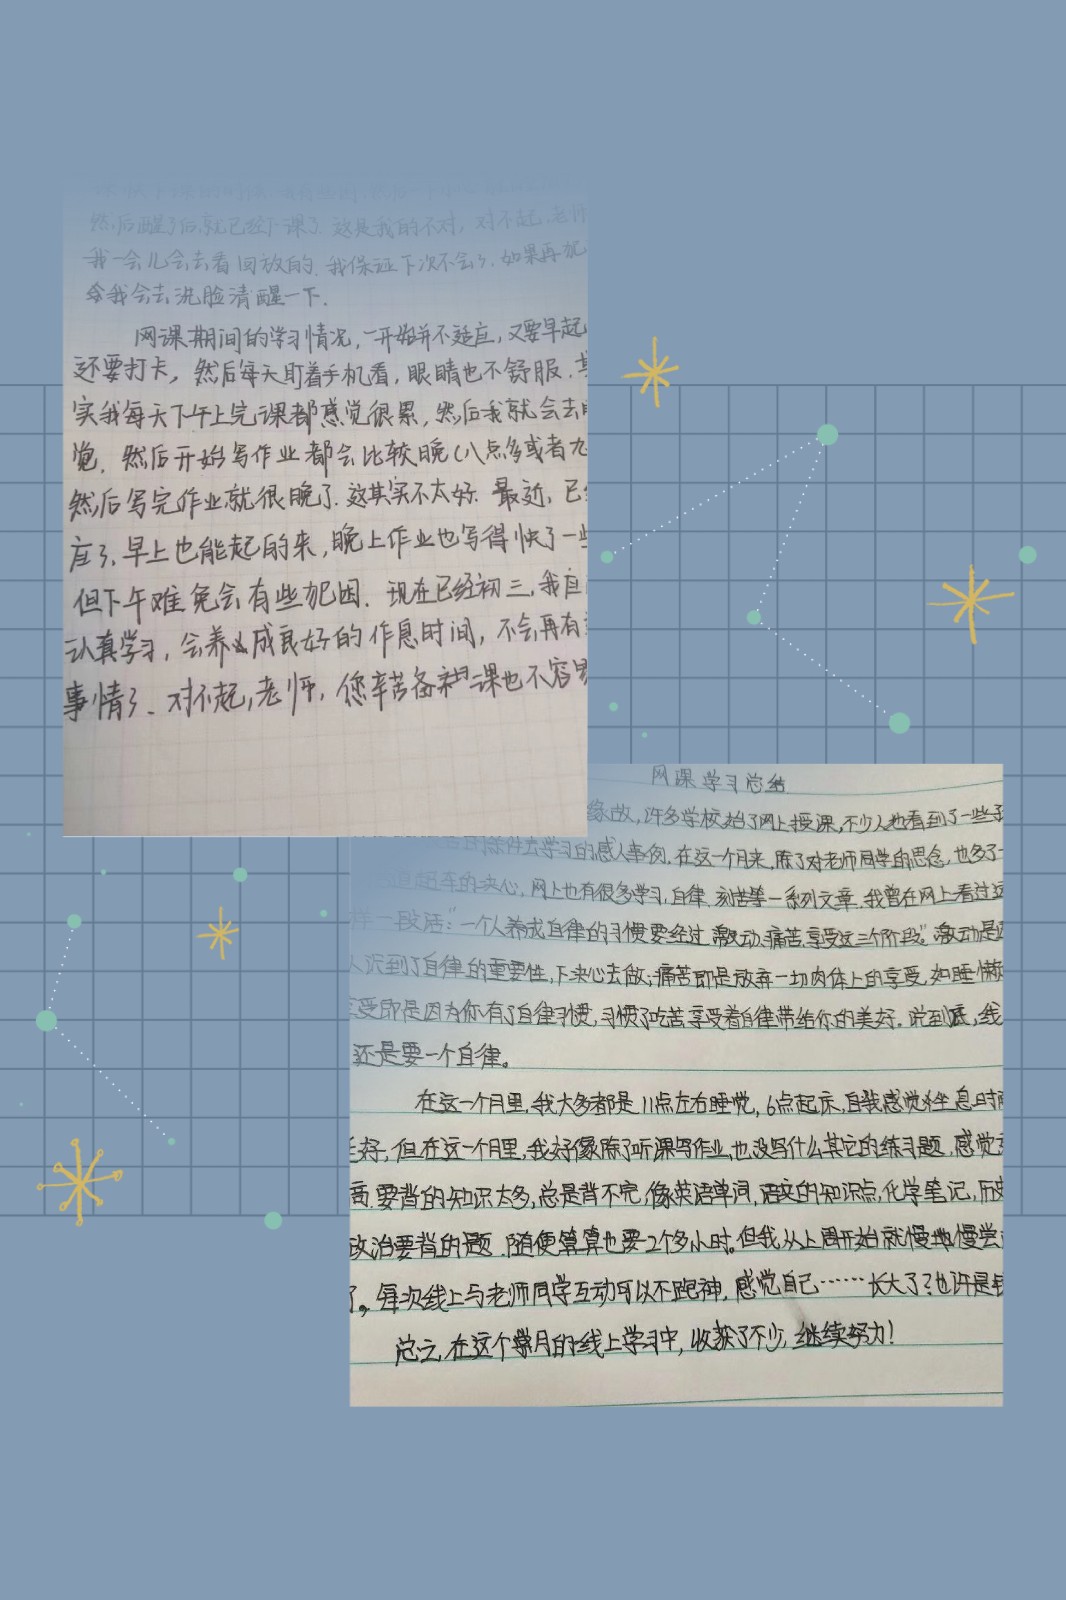 然后醒了后,就已经下课了.这是我的不对,对不起,老师
我一会儿会去看回放的.我保证下次不会了.如果再犯
我会去洗脸清醒一下.
网课期间的学习情况,一开始并不适应,又要早起
还要打卡,然后每天盯着手机看,眼睛也不舒服.其
实我每天下午上完课都感觉很累,然后我就会去
觉,然后开始写作业都会比较晚(八点多或者九
然后写完作业就很晚了.这其实不太好.最近,已
应了,早上也能起的来,晚上作业也写得快了一些
但下午难免会有些犯困.现在已经初三,我
认真学习,会养成良好的作息时间,不会再有
事情了.对不起,老师,您辛苦备课也不容易
网课学习总结
缘故,许多学校始了网上授课,不少人也看到了一些
条件去学习的感人事例.在这一个月来,除了对老师同学的思念,也多了一
道超车的决心,网上也有很多学习,自律,刻苦等一系列文章.我曾在网上看过这
样一段话:"一个人养成自律的习惯要经过激动、痛苦、享受这三个阶段"激动是
识到了自律的重要性,下决心去做;痛苦即是放弃一切肉体上的享受,如睡懒
受即是因为你有了自律习惯,习惯了吃苦享受着自律带给你的美好.说到底,线
还是要一个自律。
在这一个月里,我大多都是11点左右睡觉,6点起床,自我感觉作息时间
好,但在这一个月里,我好像除了听课写作业,也没写什么其它的练习题.感觉
高.要背的知识太多,总是背不完,像英语单词,语文的知识点,化学笔记,历史
政治要背的题,随便算算也要2个多小时。但我从上周开始就慢慢尝
了。每次线上与老师同学互动可以不跑神,感觉自己……长大了?也许是
总之,在这个学月的线上学习中,收获了不少,继续努力!